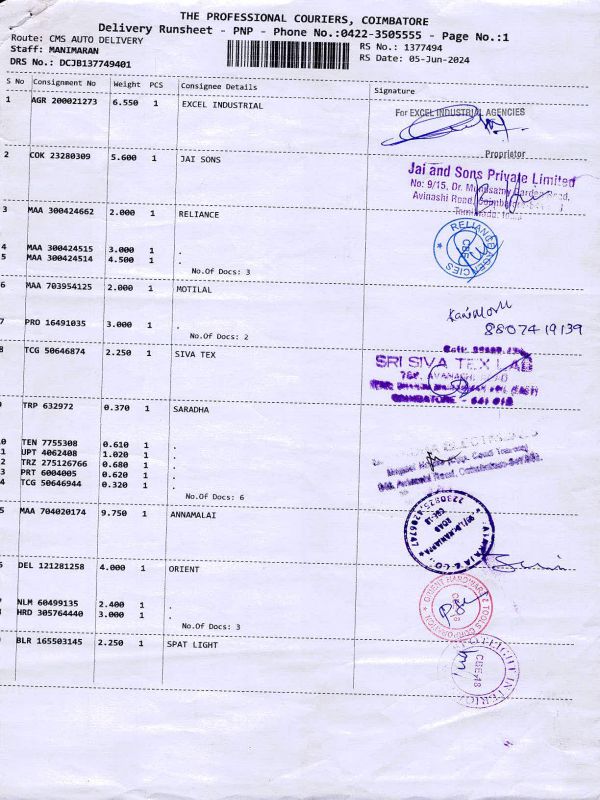 THE PROFESSIONAL COURIERS, COIMBATORE
Delivery Runsheet - PNP - Phone No.:0422-3505555 - Page No.:1
Route: CMS AUTO DELIVERY
RS No.: 1377494
Staff: MANIMARAN
RS Date: 05-Jun-2024
DRS No.: DCJB137749401
S No Consignment No Weight PCS Consignee Details Signature
1 AGR 200021273 6.550 1 EXCEL INDUSTRIAL
For EXCEL INDUSTRIAL AGENCIES
Proprietor
2 COK 23280309 5.600 1 JAI SONS
Jai and Sons Private Limited
No: 9/15, Dr.
Avinashi Road,
3 MAA 300424662 2.000 1 RELIANCE
RELIANCE AGENCIES
CBE
4 MAA 300424515 3.000 1 .
5 MAA 300424514 4.500 1 .
No.Of Docs: 3
6 MAA 703954125 2.000 1 MOTILAL
8807419139
7 PRO 16491035 3.000 1 .
No.Of Docs: 2
8 TCG 50646874 2.250 1 SIVA TEX
SRI SIVA TEX LAB
COIMBATORE - 641 018
9 TRP 632972 0.370 1 SARADHA
0 TEN 7755308 0.610 1 .
1 UPT 4062408 1.020 1 .
2 TRZ 275126766 0.680 1 .
3 PRT 6004005 0.620 1 .
4 TCG 50646944 0.320 1 .
No.Of Docs: 6
5 MAA 704020174 9.750 1 ANNAMALAI
6 DEL 121281258 4.000 1 ORIENT
7 NLM 60499135 2.400 1 .
8 HRD 305764440 3.000 1 .
No.Of Docs: 3
9 BLR 165503145 2.250 1 SPAT LIGHT
CBE-18